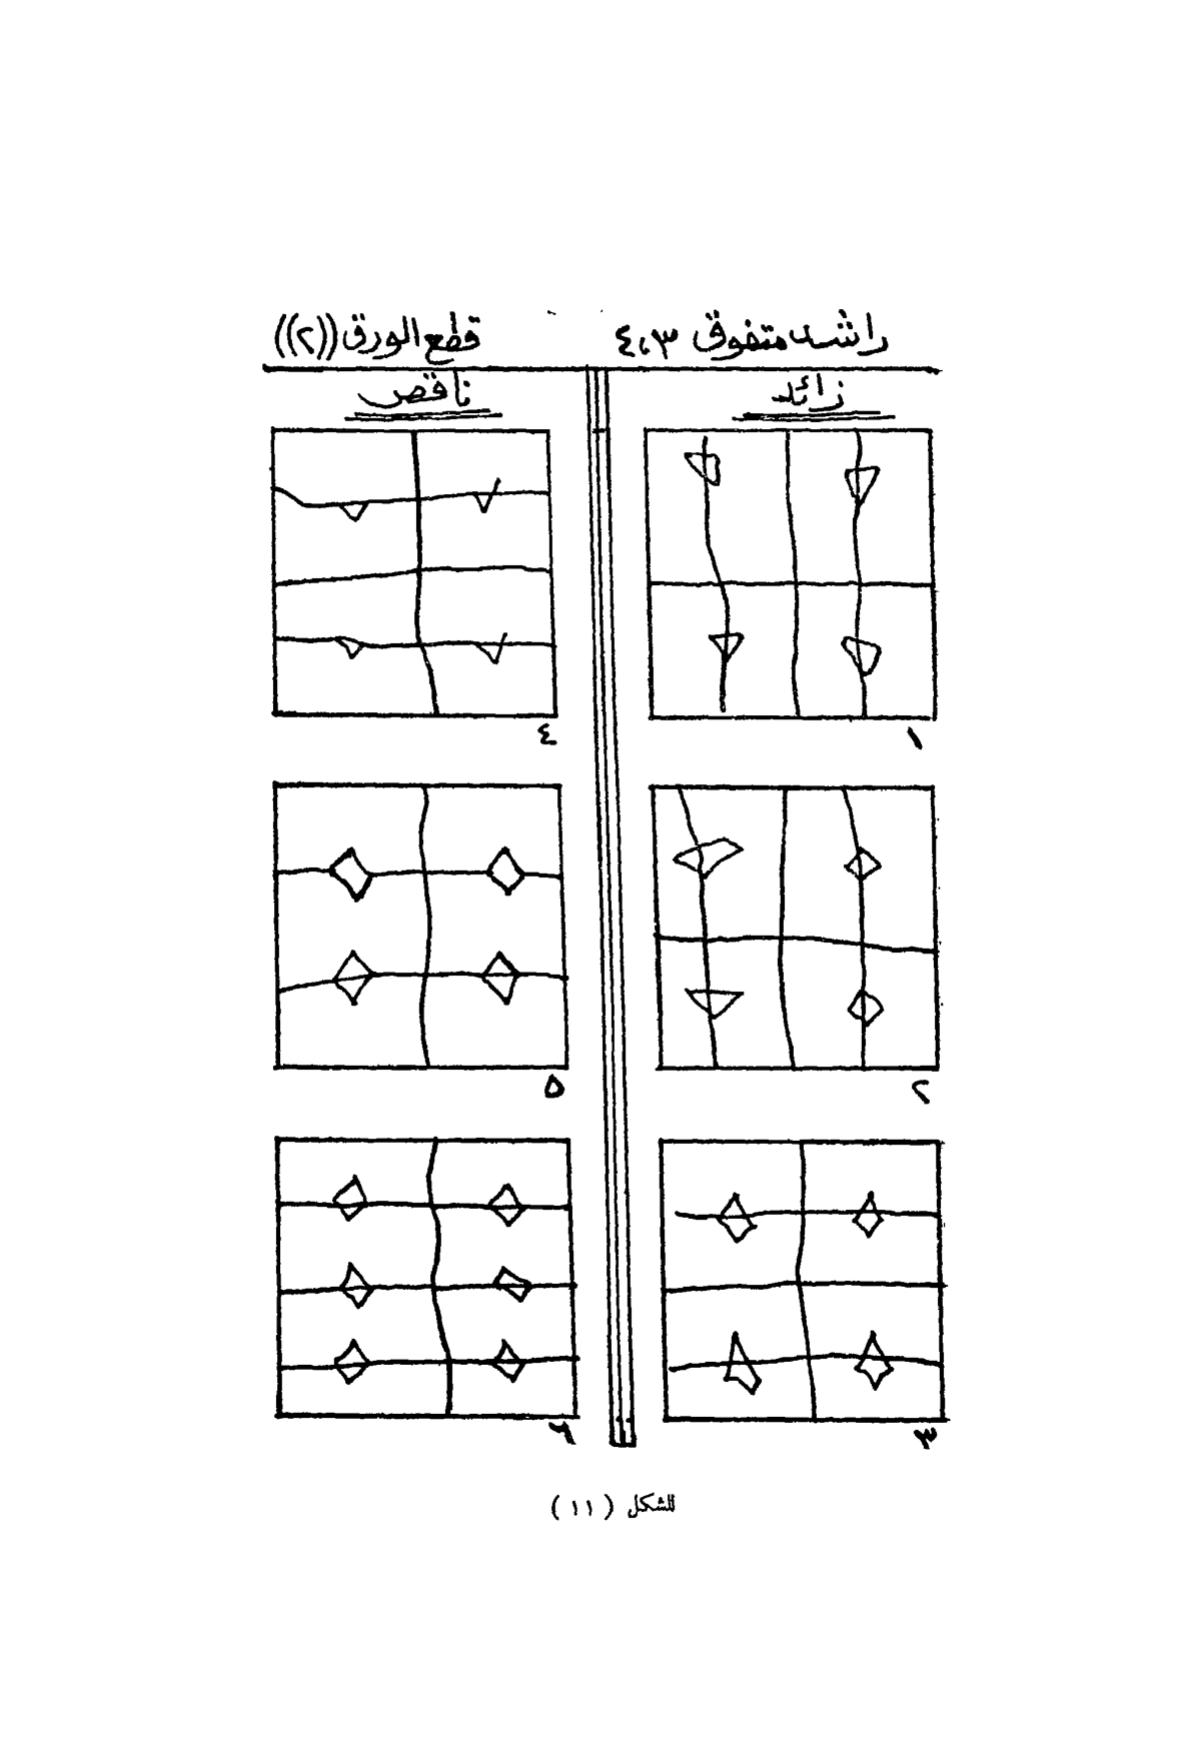 راشد متفوق ٤،٣
قطع الورق ((٢))
زائد
ناقص
١
٤
٢
٥
٣
٦
الشكل (١١)